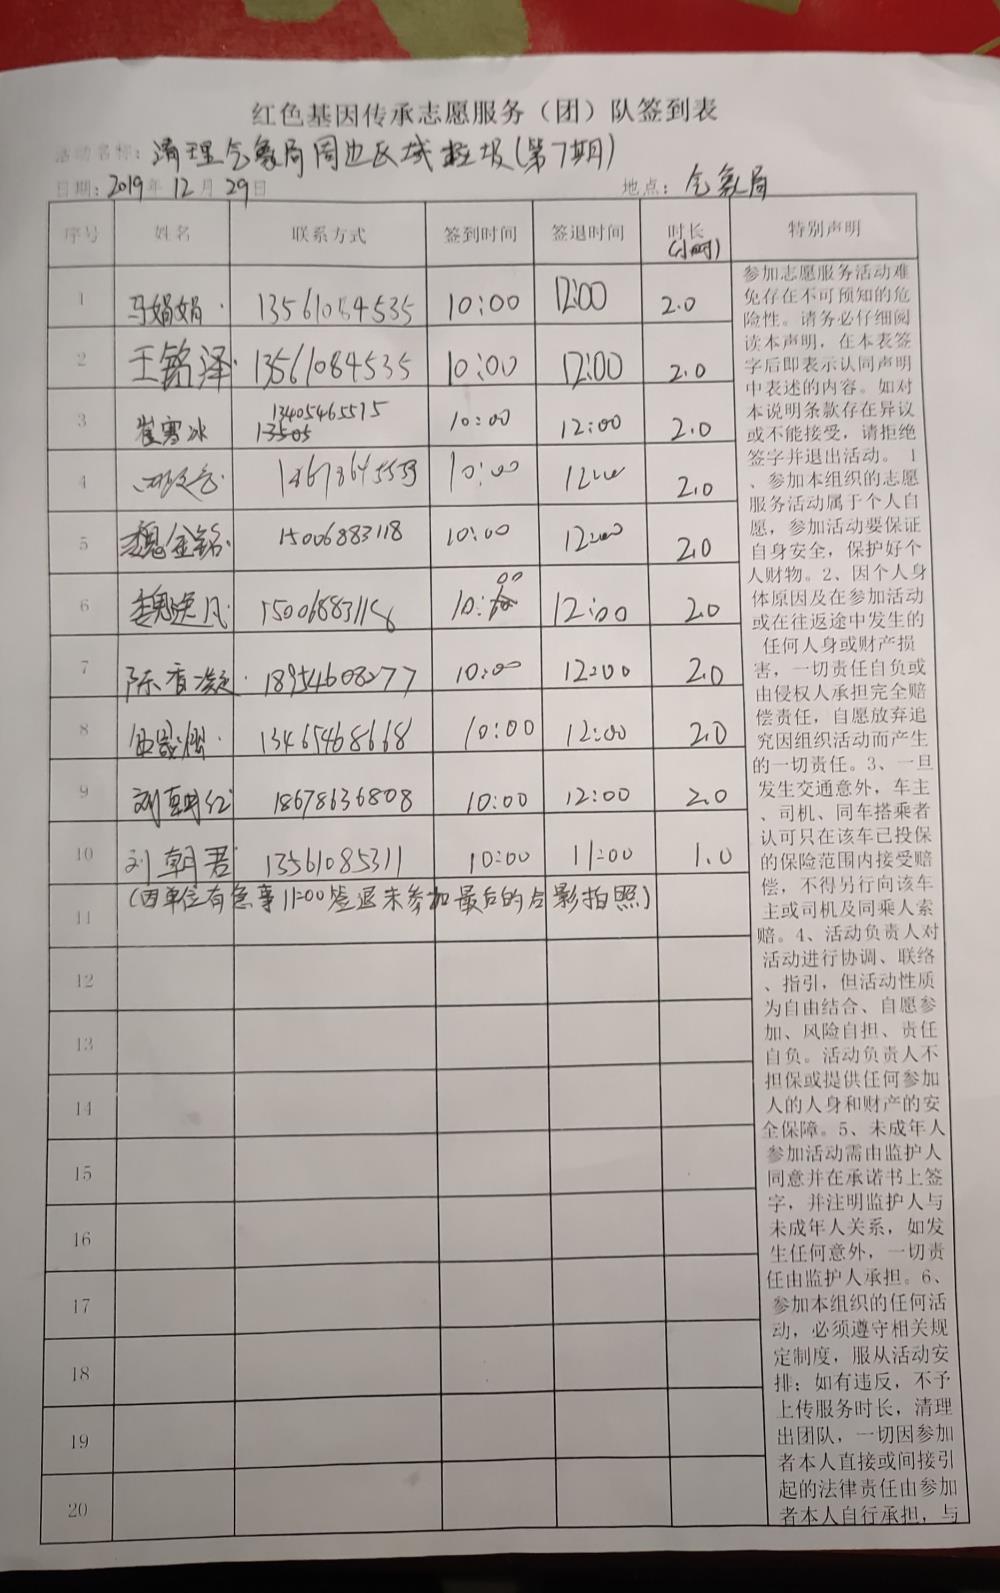 红色基因传承志愿服务（团）队签到表
活动名称：清理气象局周边区域垃圾(第7期)
日期：2019年12月29日 地点：气象局
序号 姓名 联系方式 签到时间 签退时间 时长(小时) 特别声明
1 马娟娟 13561084535 10:00 12:00 2.0
2 王铭泽 13561084535 10:00 12:00 2.0
3 崔雪冰 13405465515 10:00 12:00 2.0
4 10:00 12:00 2.0
5 魏金铭 15006883118 10:00 12:00 2.0
6 魏逸凡 15006883118 10:00 12:00 2.0
7 陈香凝 18954608277 10:00 12:00 2.0
8 13465468668 10:00 12:00 2.0
9 刘朝红 18678636808 10:00 12:00 2.0
10 刘朝君 13561085311 10:00 11:00 1.0
11 (因单位有急事11:00签退未参加最后的合影拍照)
12
13
14
15
16
17
18
19
20
参加志愿服务活动难
免存在不可预知的危
险性。请务必仔细阅
读本声明，在本表签
字后即表示认同声明
中表述的内容。如对
本说明条款存在异议
或不能接受，请拒绝
签字并退出活动。 1
、参加本组织的志愿
服务活动属于个人自
愿，参加活动要保证
自身安全，保护好个
人财物。2、因个人身
体原因及在参加活动
或在往返途中发生的
任何人身或财产损
害，一切责任自负或
由侵权人承担完全赔
偿责任，自愿放弃追
究因组织活动而产生
的一切责任。3、一旦
发生交通意外，车主
、司机、同车搭乘者
认可只在该车已投保
的保险范围内接受赔
偿，不得另行向该车
主或司机及同乘人索
赔。4、活动负责人对
活动进行协调、联络
、指引，但活动性质
为自由结合、自愿参
加、风险自担、责任
自负。活动负责人不
担保或提供任何参加
人的人身和财产的安
全保障。5、未成年人
参加活动需由监护人
同意并在承诺书上签
字，并注明监护人与
未成年人关系，如发
生任何意外，一切责
任由监护人承担。6、
参加本组织的任何活
动，必须遵守相关规
定制度，服从活动安
排；如有违反，不予
上传服务时长，清理
出团队，一切因参加
者本人直接或间接引
起的法律责任由参加
者本人自行承担，与